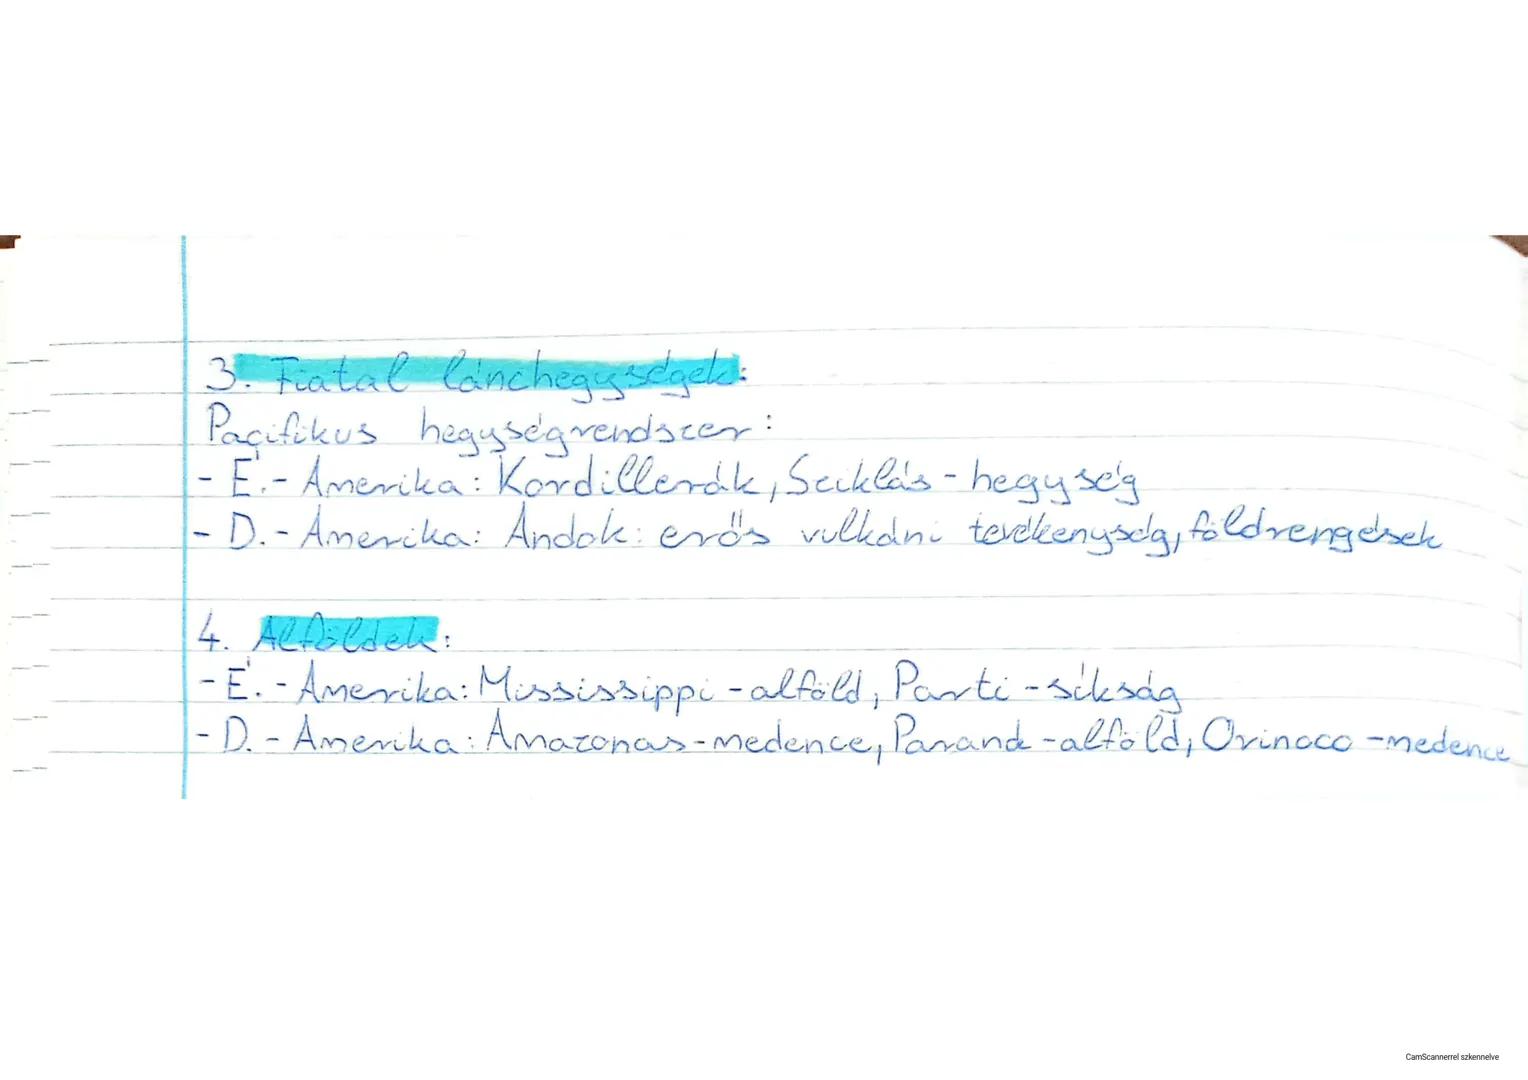 3. Fiatal lánchegységek:
Pacifikus hegységrendszer:
- É.- Amerika: Kordillerák, Sziklás - hegység
- D.- Amerika: Andok: erős vulkáni tevékenység, földrengések
4. Alföldek:
- É. - Amerika: Mississippi - alföld, Parti - síkság
- D. - Amerika: Amazonas-medence, Paraná - alföld, Orinoco - medence
CamScannerrel szkennelve